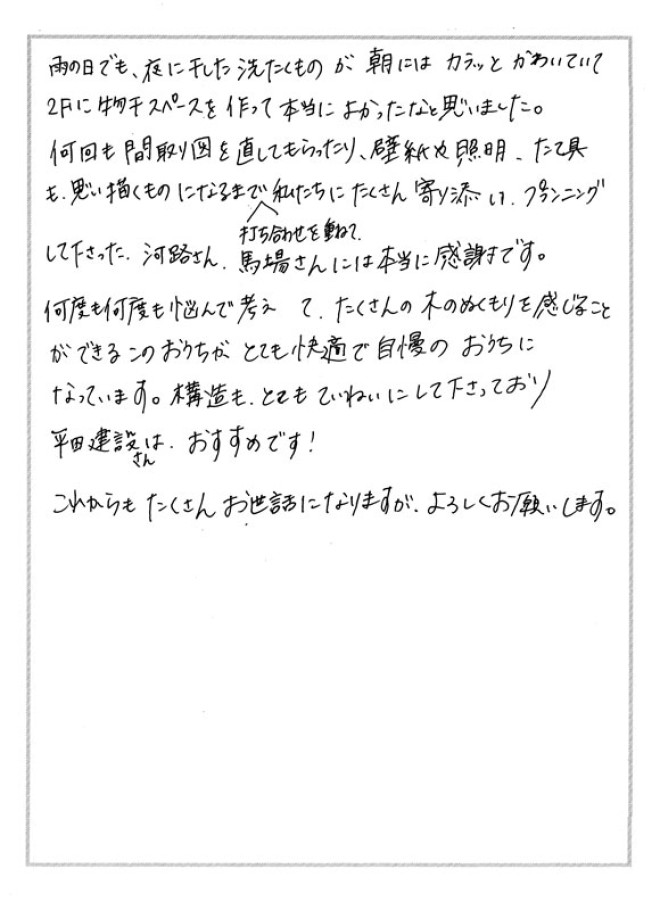 雨の日でも、夜に干した洗たくものが 朝には カラッと かわいていて
2Fに物干スペースを作って本当によかったなと思いました。
何回も間取り図を直してもらったり、壁紙や照明、たて具
も、思い描くものになるまで私たちにたくさん寄り添い、プランニング
打ち合わせを重ねて、
して下さった、河路さん、馬場さんには本当に感謝です。
何度も何度も悩んで考えて、たくさんの木のぬくもりを感じること
ができるこのおうちが、とても快適で自慢のおうちに
なっています。構造も、とてもていねいにして下さっており
平田建設さんは、おすすめです!
これからもたくさんお世話になりますが、よろしくお願いします。